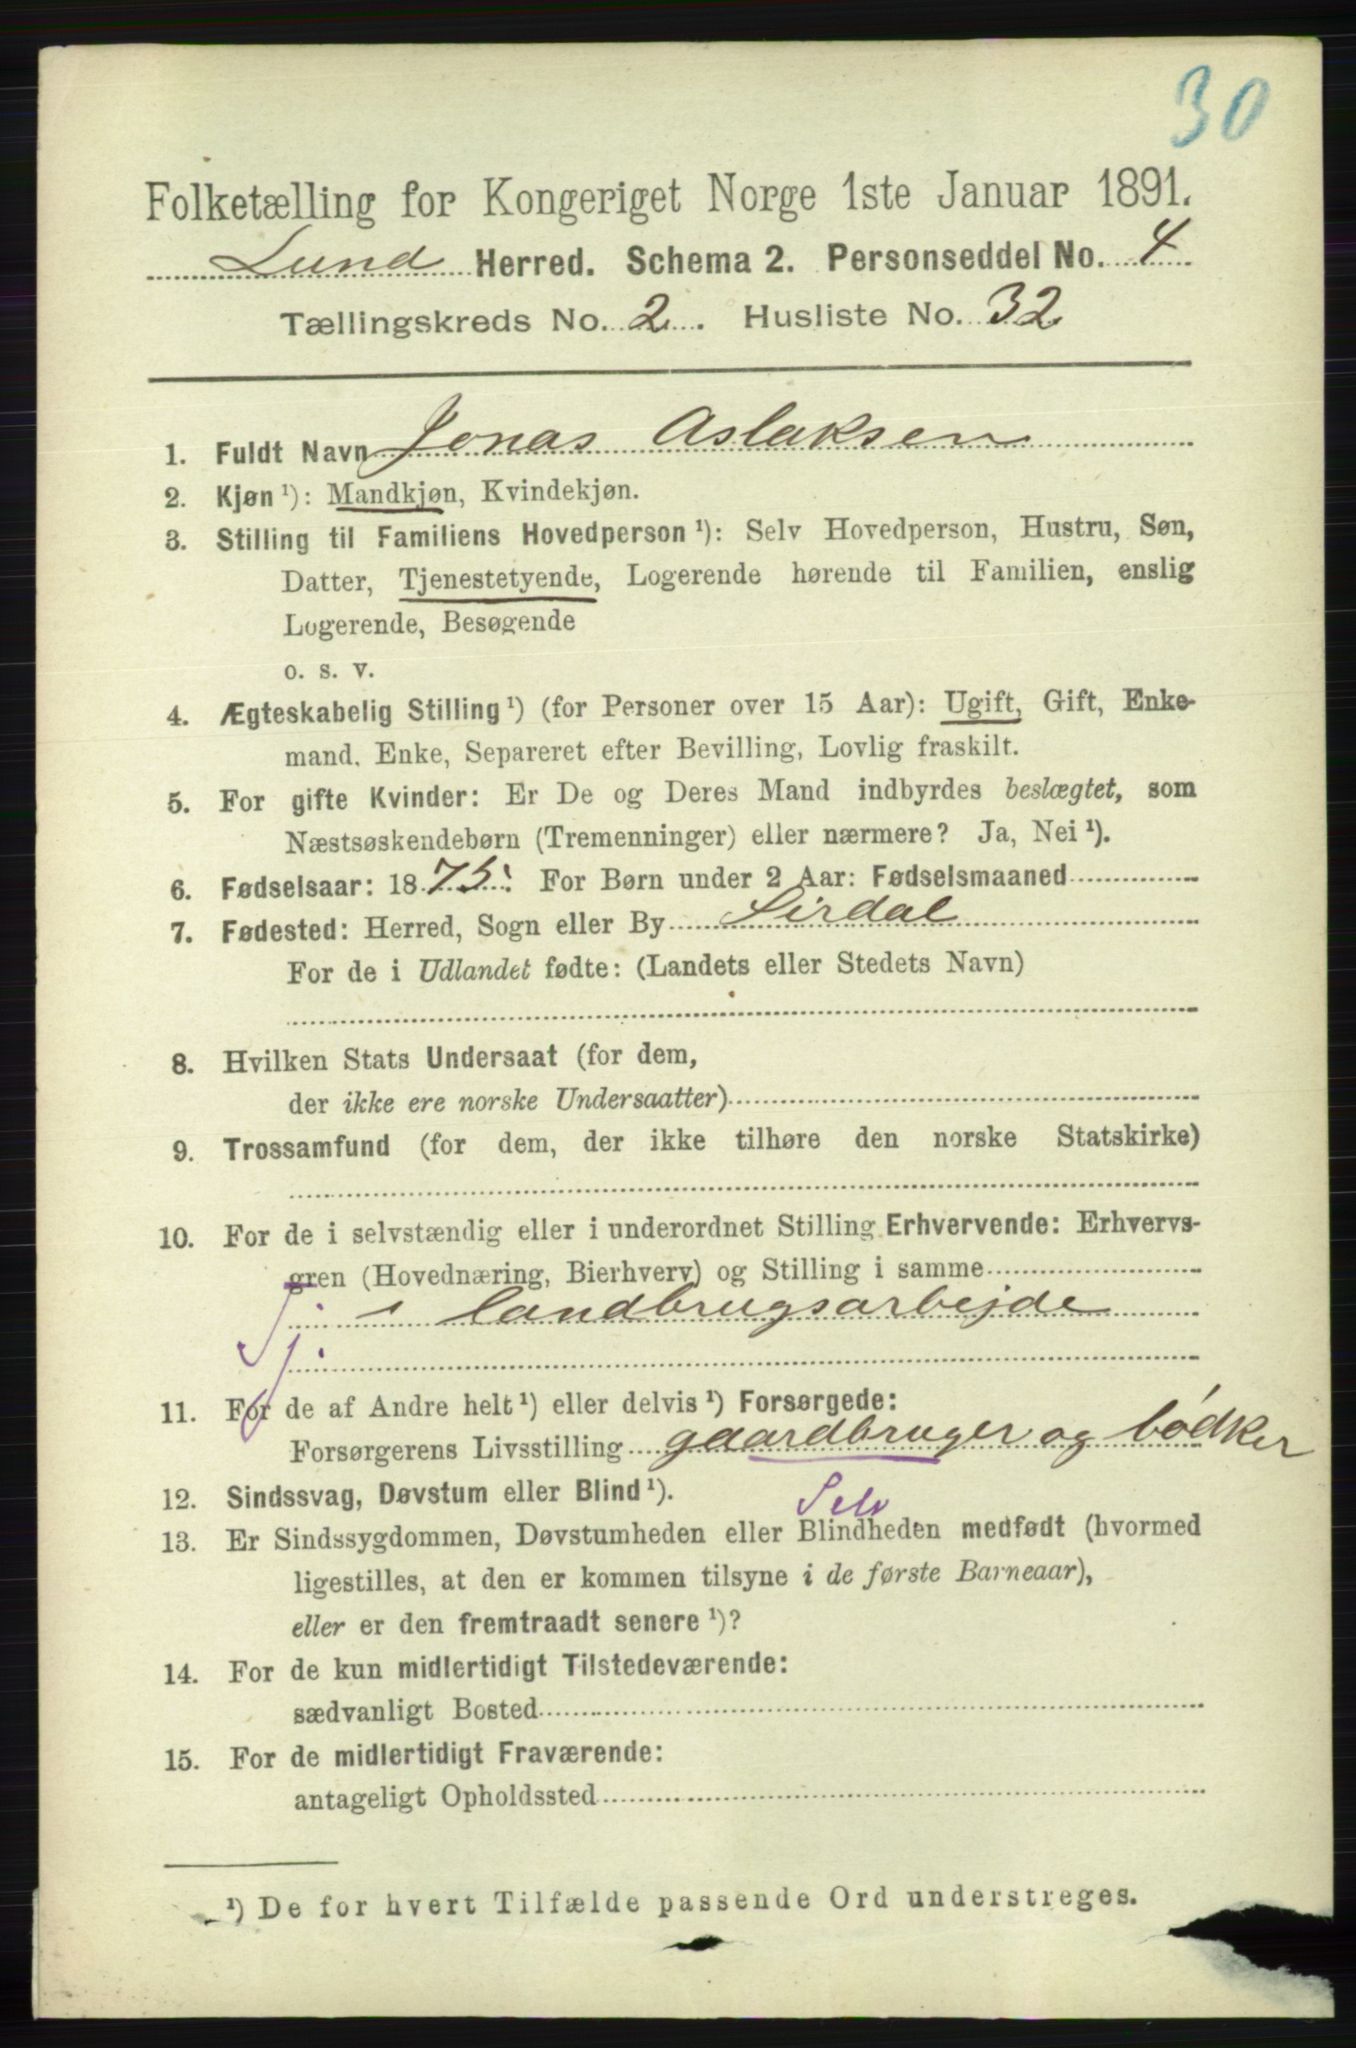 30
Folketælling for Kongeriget Norge 1ste Januar 1891.
Lund Herred. Schema 2. Personseddel No. 4
Tællingskreds No. 2. Husliste No. 32
1. Fuldt Navn Jonas Aslaksen
2. Kjøn ¹): Mandkjøn, Kvindekjøn.
3. Stilling til Familiens Hovedperson ¹): Selv Hovedperson, Hustru, Søn,
Datter, Tjenestetyende, Logerende hørende til Familien, enslig
Logerende, Besøgende
o. s. v.
4. Ægteskabelig Stilling ¹) (for Personer over 15 Aar): Ugift, Gift, Enke-
mand, Enke, Separeret efter Bevilling, Lovlig fraskilt.
5. For gifte Kvinder: Er De og Deres Mand indbyrdes beslægtet, som
Næstsøskendebørn (Tremenninger) eller nærmere? Ja, Nei ¹).
6. Fødselsaar: 1875. For Børn under 2 Aar: Fødselsmaaned
7. Fødested: Herred, Sogn eller By Sirdal
For de i Udlandet fødte: (Landets eller Stedets Navn)
8. Hvilken Stats Undersaat (for dem,
der ikke ere norske Undersaatter)
9. Trossamfund (for dem, der ikke tilhøre den norske Statskirke)
10. For de i selvstændig eller i underordnet Stilling Erhvervende: Erhvervs-
gren (Hovednæring, Bierhverv) og Stilling i samme
Tj. i landbrugsarbejde
11. For de af Andre helt ¹) eller delvis ¹) Forsørgede:
Forsørgerens Livsstilling gaardbruger og bødker
12. Sindssvag, Døvstum eller Blind ¹). Selv
13. Er Sindssygdommen, Døvstumheden eller Blindheden medfødt (hvormed
ligestilles, at den er kommen tilsyne i de første Barneaar),
eller er den fremtraadt senere ¹)?
14. For de kun midlertidigt Tilstedeværende:
sædvanligt Bosted
15. For de midlertidigt Fraværende:
antageligt Opholdssted
¹) De for hvert Tilfælde passende Ord understreges.